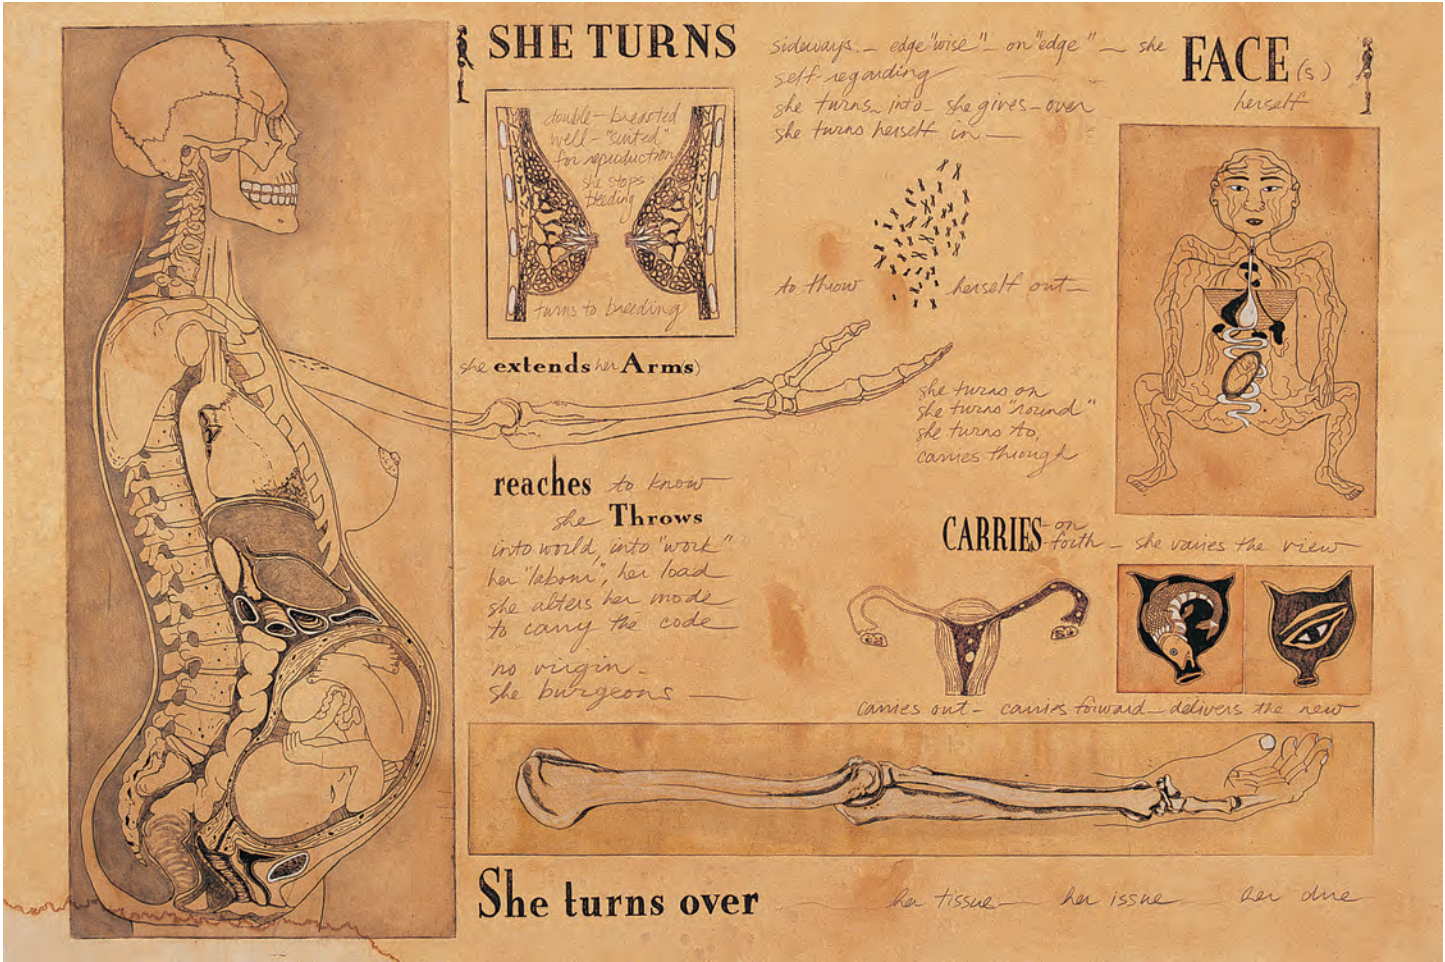 SHE TURNS
sideways – edge "wise" – on "edge" – she
FACE(s)
self-regarding
herself
she turns into – she gives – over
she turns herself in –
double-breasted
well-"suited"
for reproduction
she stops
bleeding
turns to breeding
to throw herself out –
she extends her Arm(s)
she turns on
she turns "round"
she turns to,
carries through
reaches to know
she Throws
into world, into "work"
her "labour", her load
she alters her mode
to carry the code
no virgin –
she burgeons –
CARRIES – on
forth – she varies the view
carries out – carries forward – delivers the new
She turns over
her tissue – her issue her due